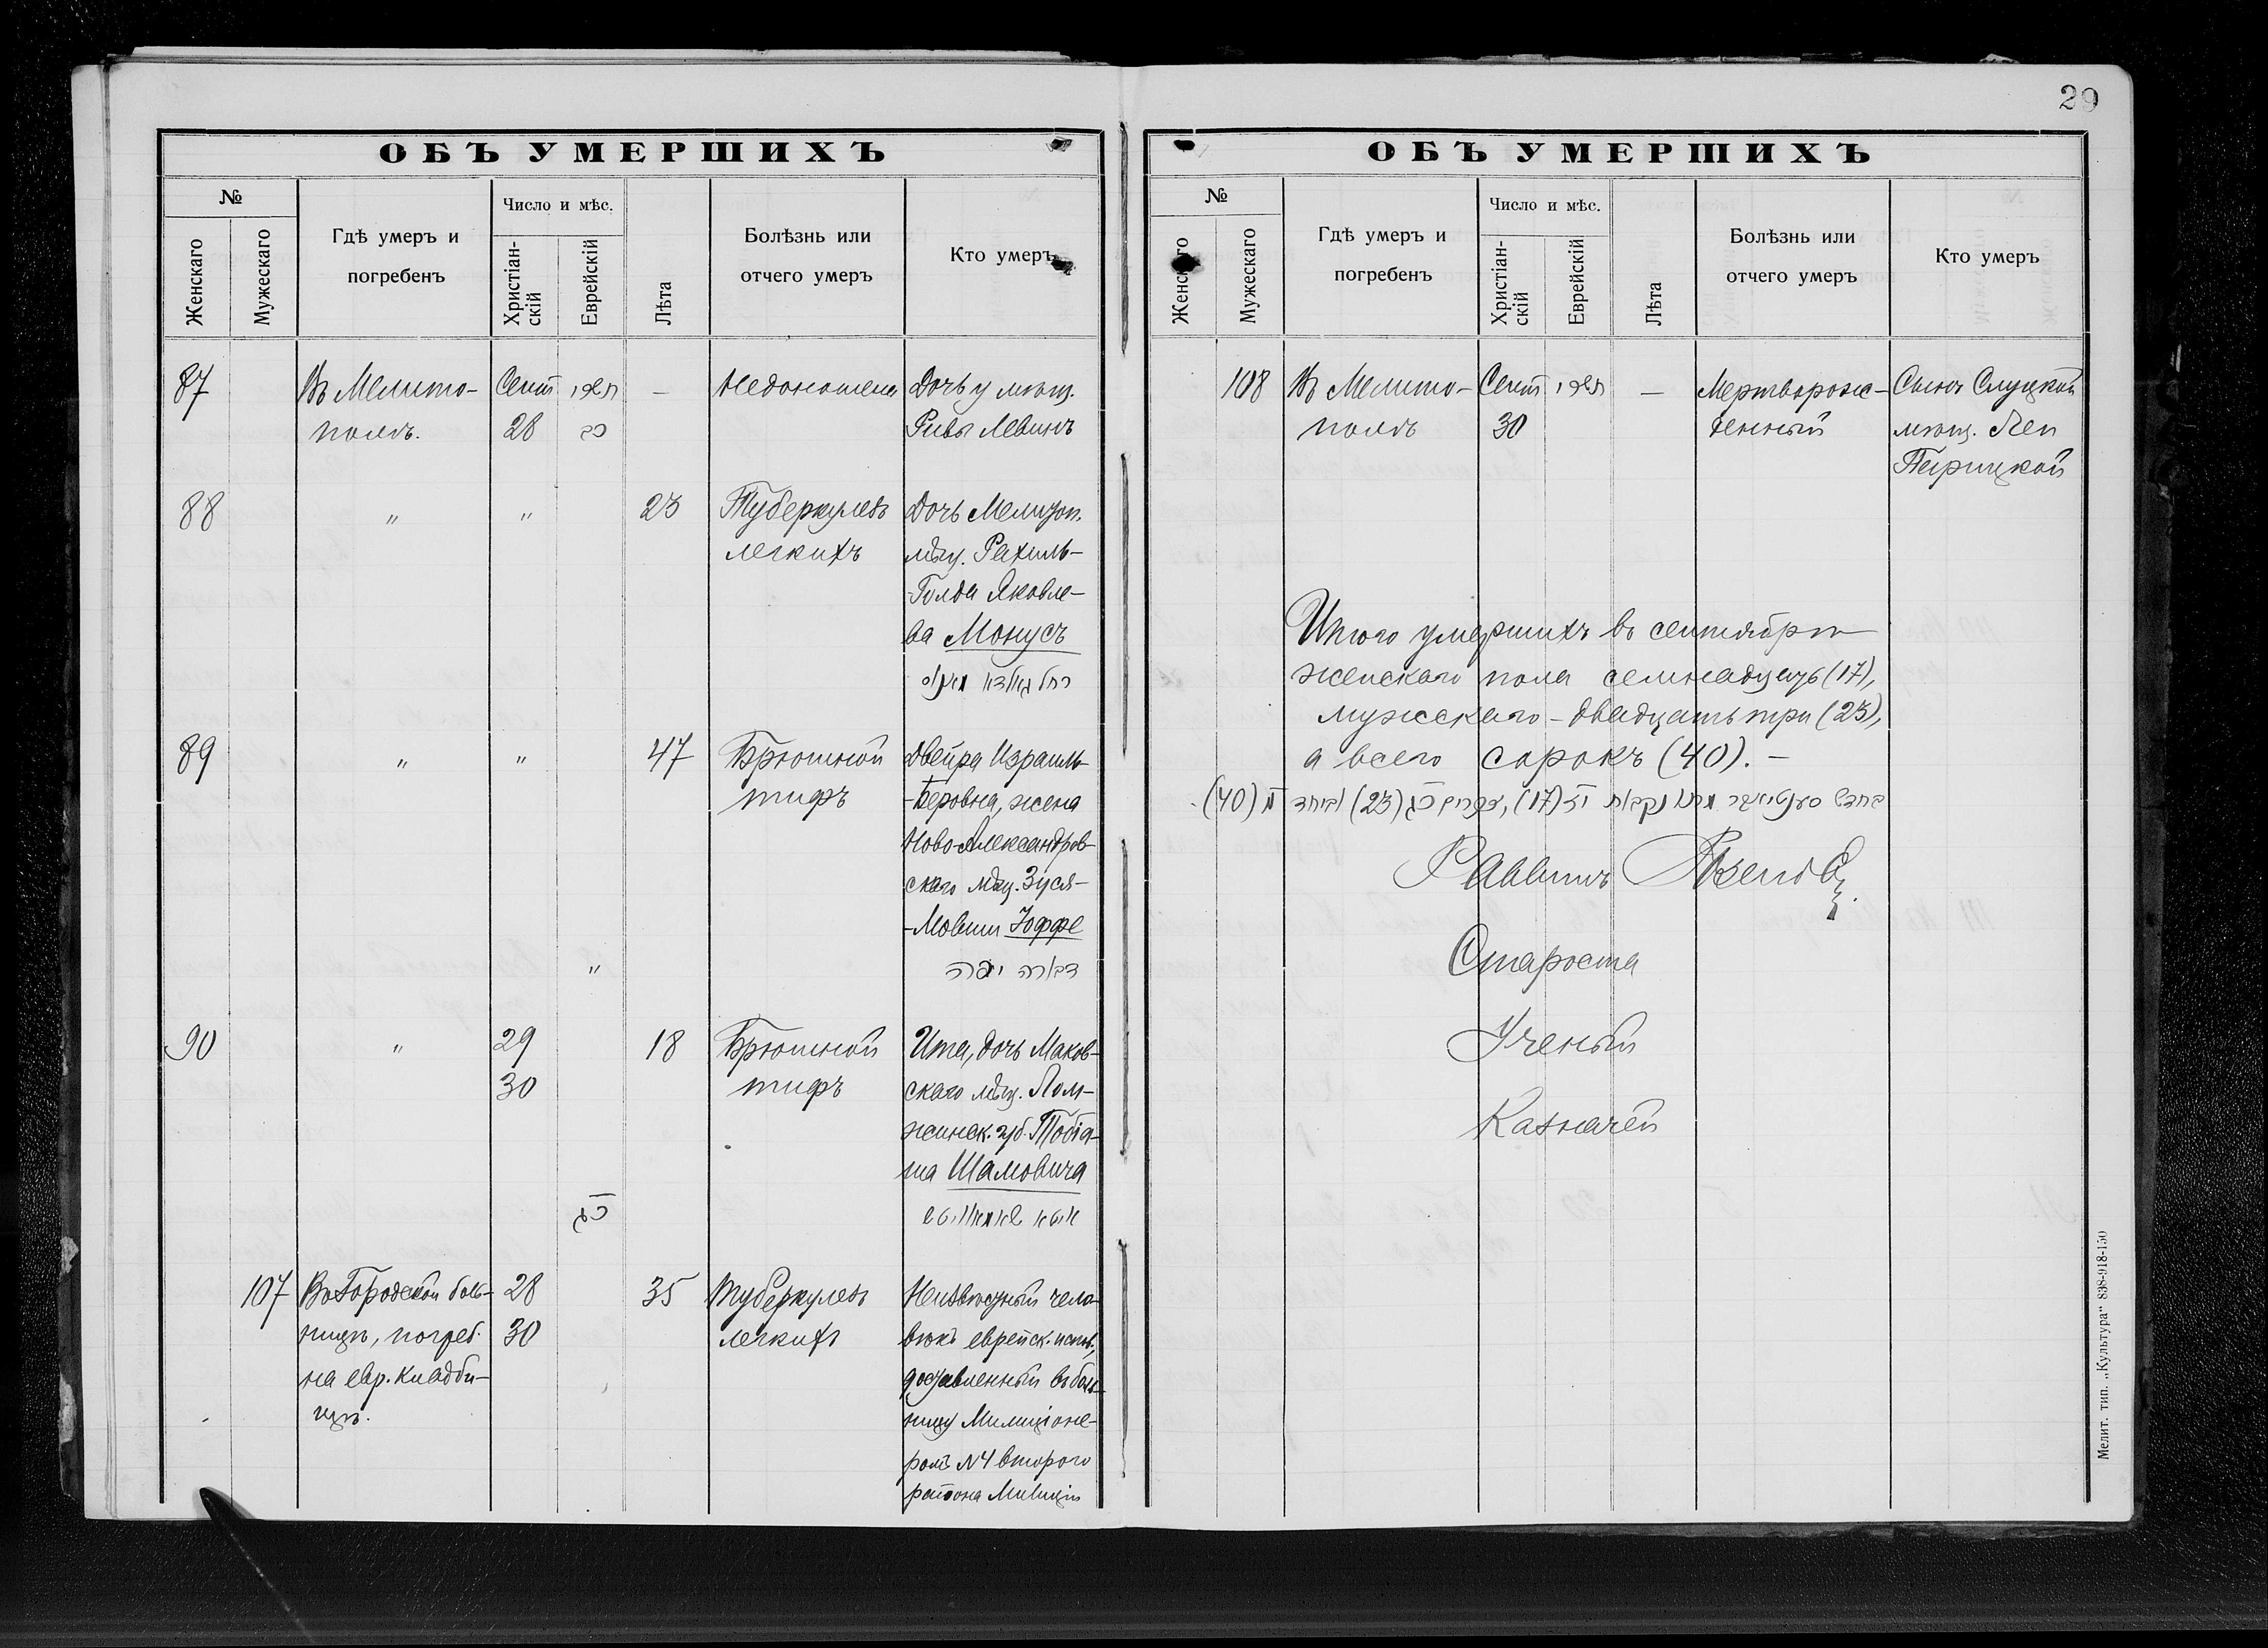 29
ОБЪ УМЕРШИХЪ
№
Женскаго
Мужескаго
Гдѣ умеръ и
погребенъ
Число и мѣс.
Христіан-
скій
Еврейскій
Лѣта
Болѣзнь или
отчего умеръ
Кто умеръ
87
Въ Мелито-
полѣ.
Сент
28
תשרי
כב
—
Недоношена
Дочь у мѣщ.
Ривы Левинъ
88
"
"
23
Туберкулезъ
легкихъ
Дочь Мелитоп.
мѣщ. Рахиль-
-Голда Яковле-
ва Монусъ
רחל גאלדא
89
"
"
"
47
Брюшной
тифъ
Двейра Израиль-
-Беровна, жена
Ново-Александров-
скаго мѣщ. Зуся-
-Мовши Іоффе
דבורה יפה
90
"
29
30
כג
18
Брюшной
тифъ
Ита, дочь Маков-
скаго мѣщ. Лом-
жинск. губ. Тобіа-
ша Шамовича
איטא
107
Въ Городской боль-
ницѣ, погреб.
на евр. кладби-
щѣ.
28
30
35
Туберкулезъ
легкихъ
Неизвѣстный чело-
вѣкъ еврейск. испов.,
доставленный въ боль-
ницу Милиціоне-
ромъ №4 второго
района Милиціи
ОБЪ УМЕРШИХЪ
№
Женскаго
Мужескаго
Гдѣ умеръ и
погребенъ
Число и мѣс.
Христіан-
скій
Еврейскій
Лѣта
Болѣзнь или
отчего умеръ
Кто умеръ
108
Въ Мелито-
полѣ
Сент
30
תשרי
—
Мертворож-
денный
Сынъ Слуцкой
мѣщ. Леи
Пирицкой
Итого умершихъ въ сентябрѣ
женскаго пола семнадцать (17),
мужскаго - двадцать три (23),
а всего сорокъ (40). -
בחדש סענטיאבר מתו נקבות יז (17), זכרים כג (23) וביחד מ (40)
Раввинъ
Староста
Ученый
Казначей
Мелит. тип. „Культура" 838-918-150